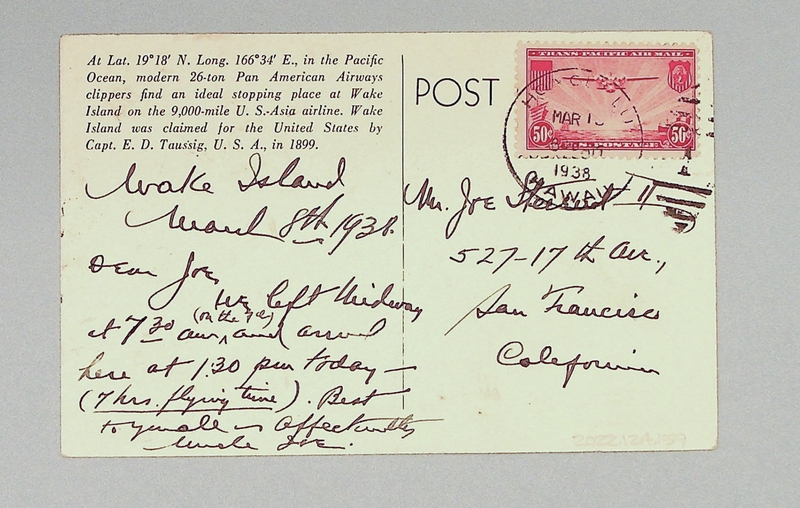 At Lat. 19°18′ N. Long. 166°34′ E., in the Pacific
Ocean, modern 26-ton Pan American Airways
clippers find an ideal stopping place at Wake
Island on the 9,000-mile U. S.-Asia airline. Wake
Island was claimed for the United States by
Capt. E. D. Taussig, U. S. A., in 1899.
Wake Island
March 8th 1938.
Dear Joe,
We left Midway
(on the 7th)
at 7 30 am, and arrived
here at 1:30 pm today —
(7 hrs. flying time). Best
to you all – Affectionately
Uncle Joe.
POST
TRANS-PACIFIC AIR MAIL
50¢ 50¢
U.S. POSTAGE
HONOLULU
MAR 1
1938
HAWAII
Mr. Joe II
527-17th Ave.,
San Francisco
California